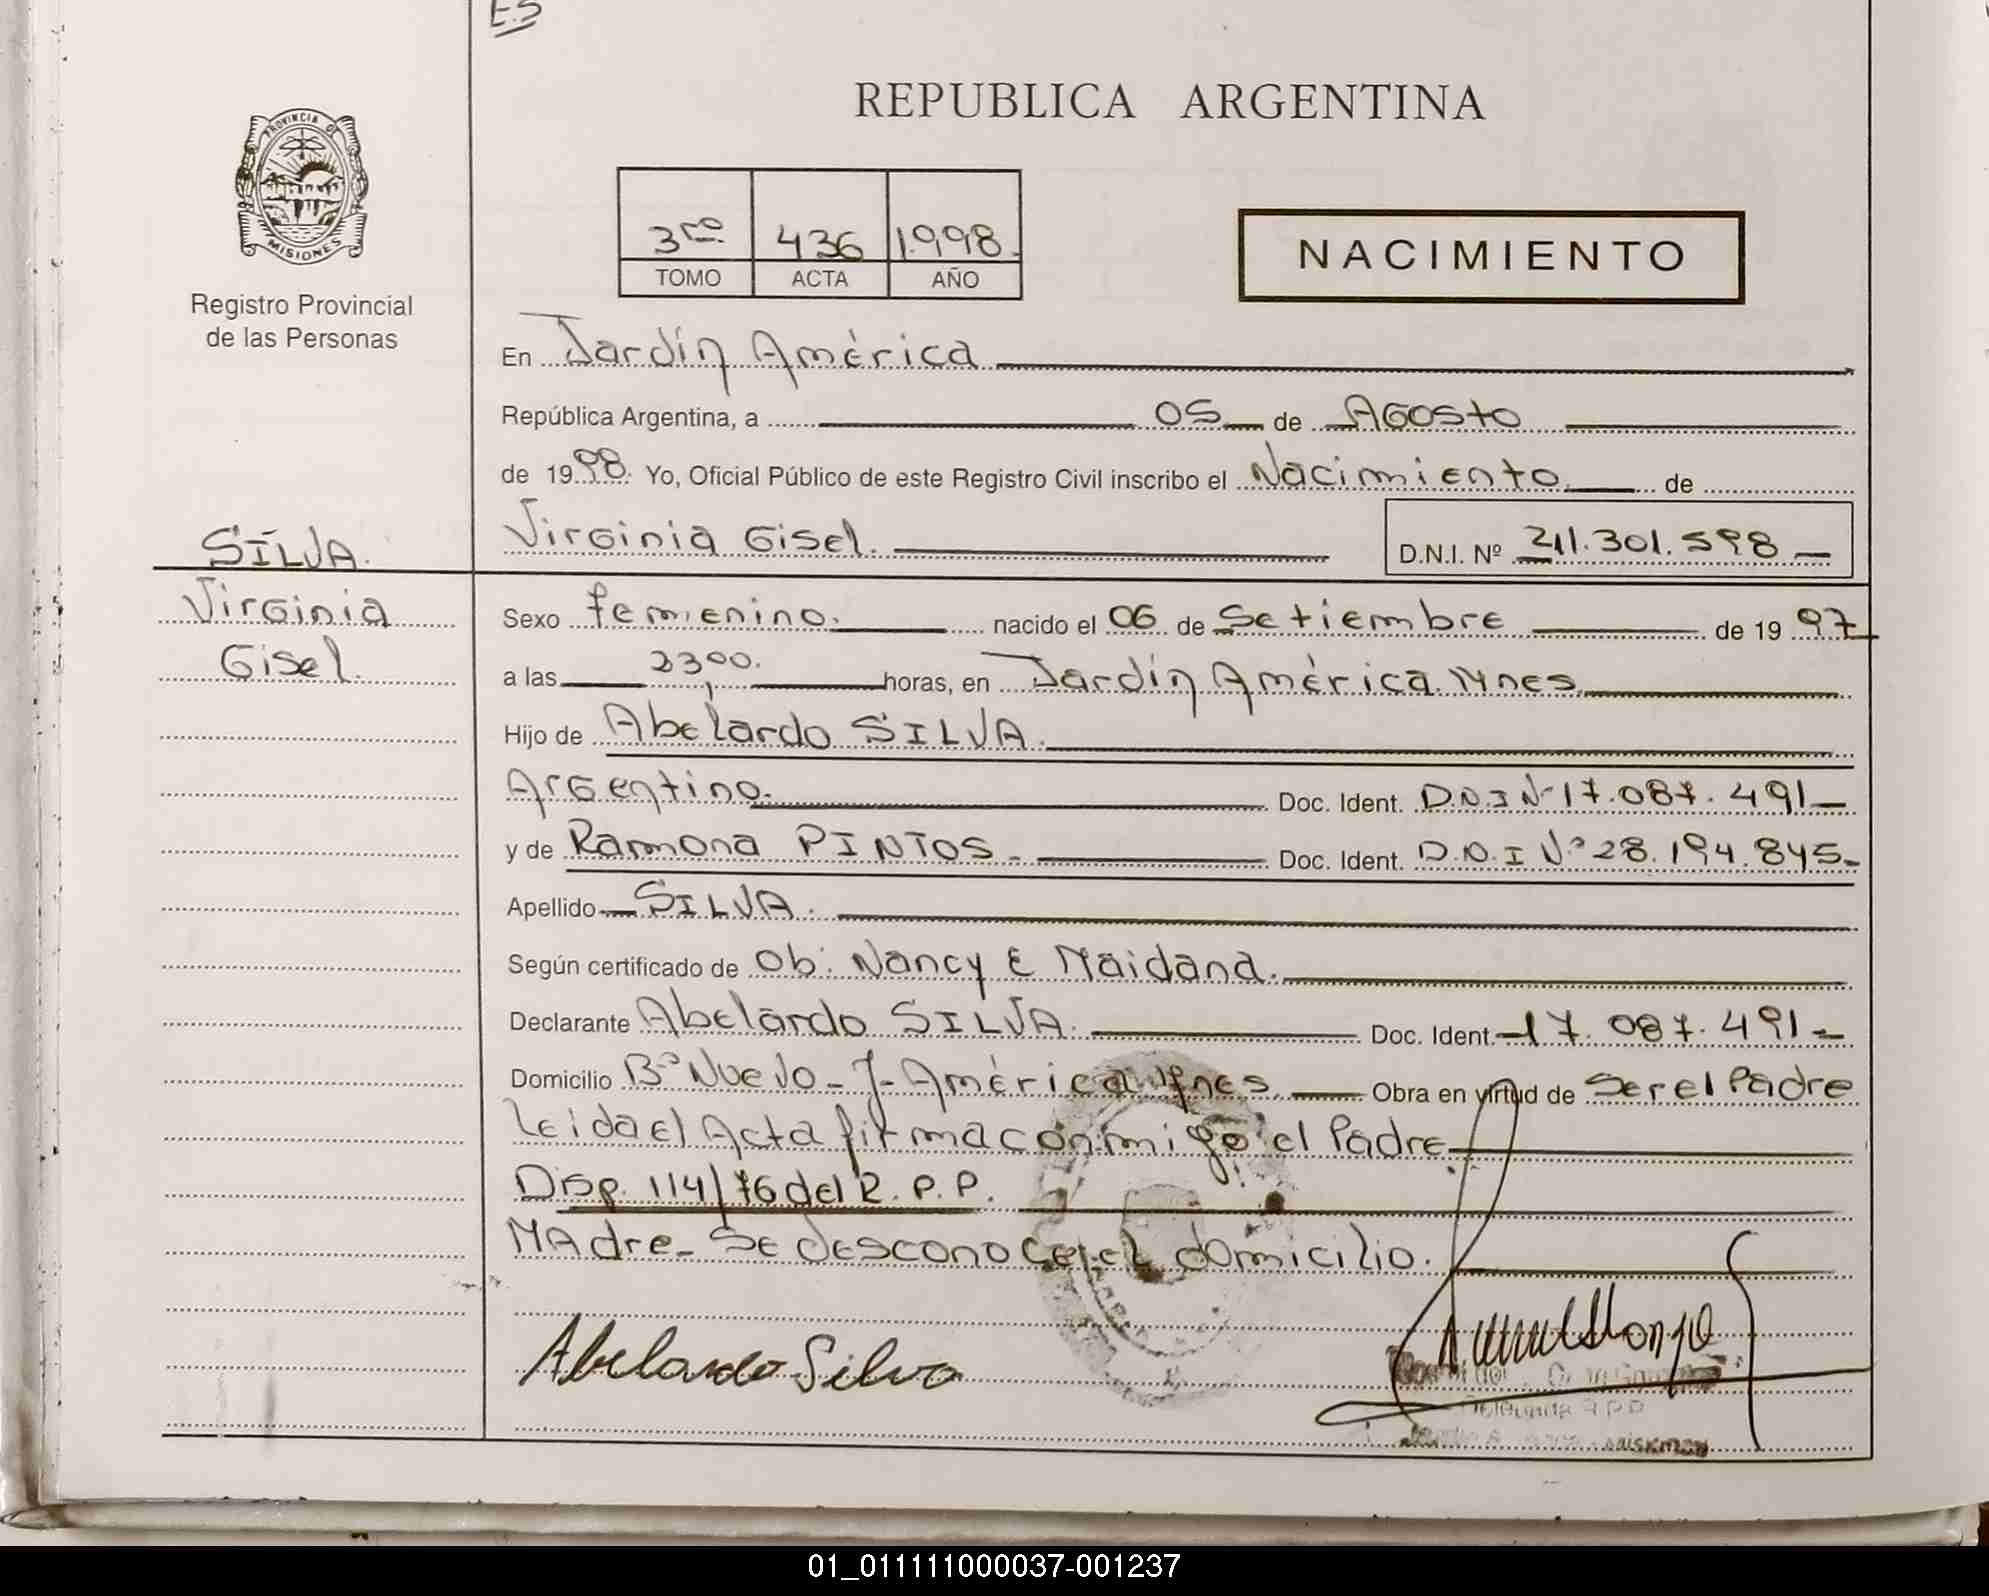 ES
REPUBLICA ARGENTINA
PROVINCIA DE
MISIONES
Registro Provincial
de las Personas
3ro 436 1998.
TOMO ACTA AÑO
NACIMIENTO
En Jardín América
República Argentina, a 05 de Agosto
de 1998. Yo, Oficial Público de este Registro Civil inscribo el Nacimiento de
Virginia Gisel. D.N.I. Nº 41.301.598
SILVA.
Virginia
Gisel.
Sexo femenino. nacido el 06 de Setiembre de 1997
a las 23,00. horas, en Jardín América Mnes.
Hijo de Abelardo SILVA.
Argentino. Doc. Ident. D.N.I Nº 17.087.491
y de Ramona PINTOS. Doc. Ident. D.N.I Nº 28.194.845
Apellido SILVA.
Según certificado de Ob: Nancy E Maidana.
Declarante Abelardo SILVA. Doc. Ident. 17.087.491
Domicilio Bº Nuevo - J - América Mnes. Obra en virtud de Ser el Padre
Leida el Acta firma conmigo el Padre.
Disp. 114/76 del R.P.P.
MAdre - Se desconoce el domicilio.
Abelardo Silva
01_011111000037-001237